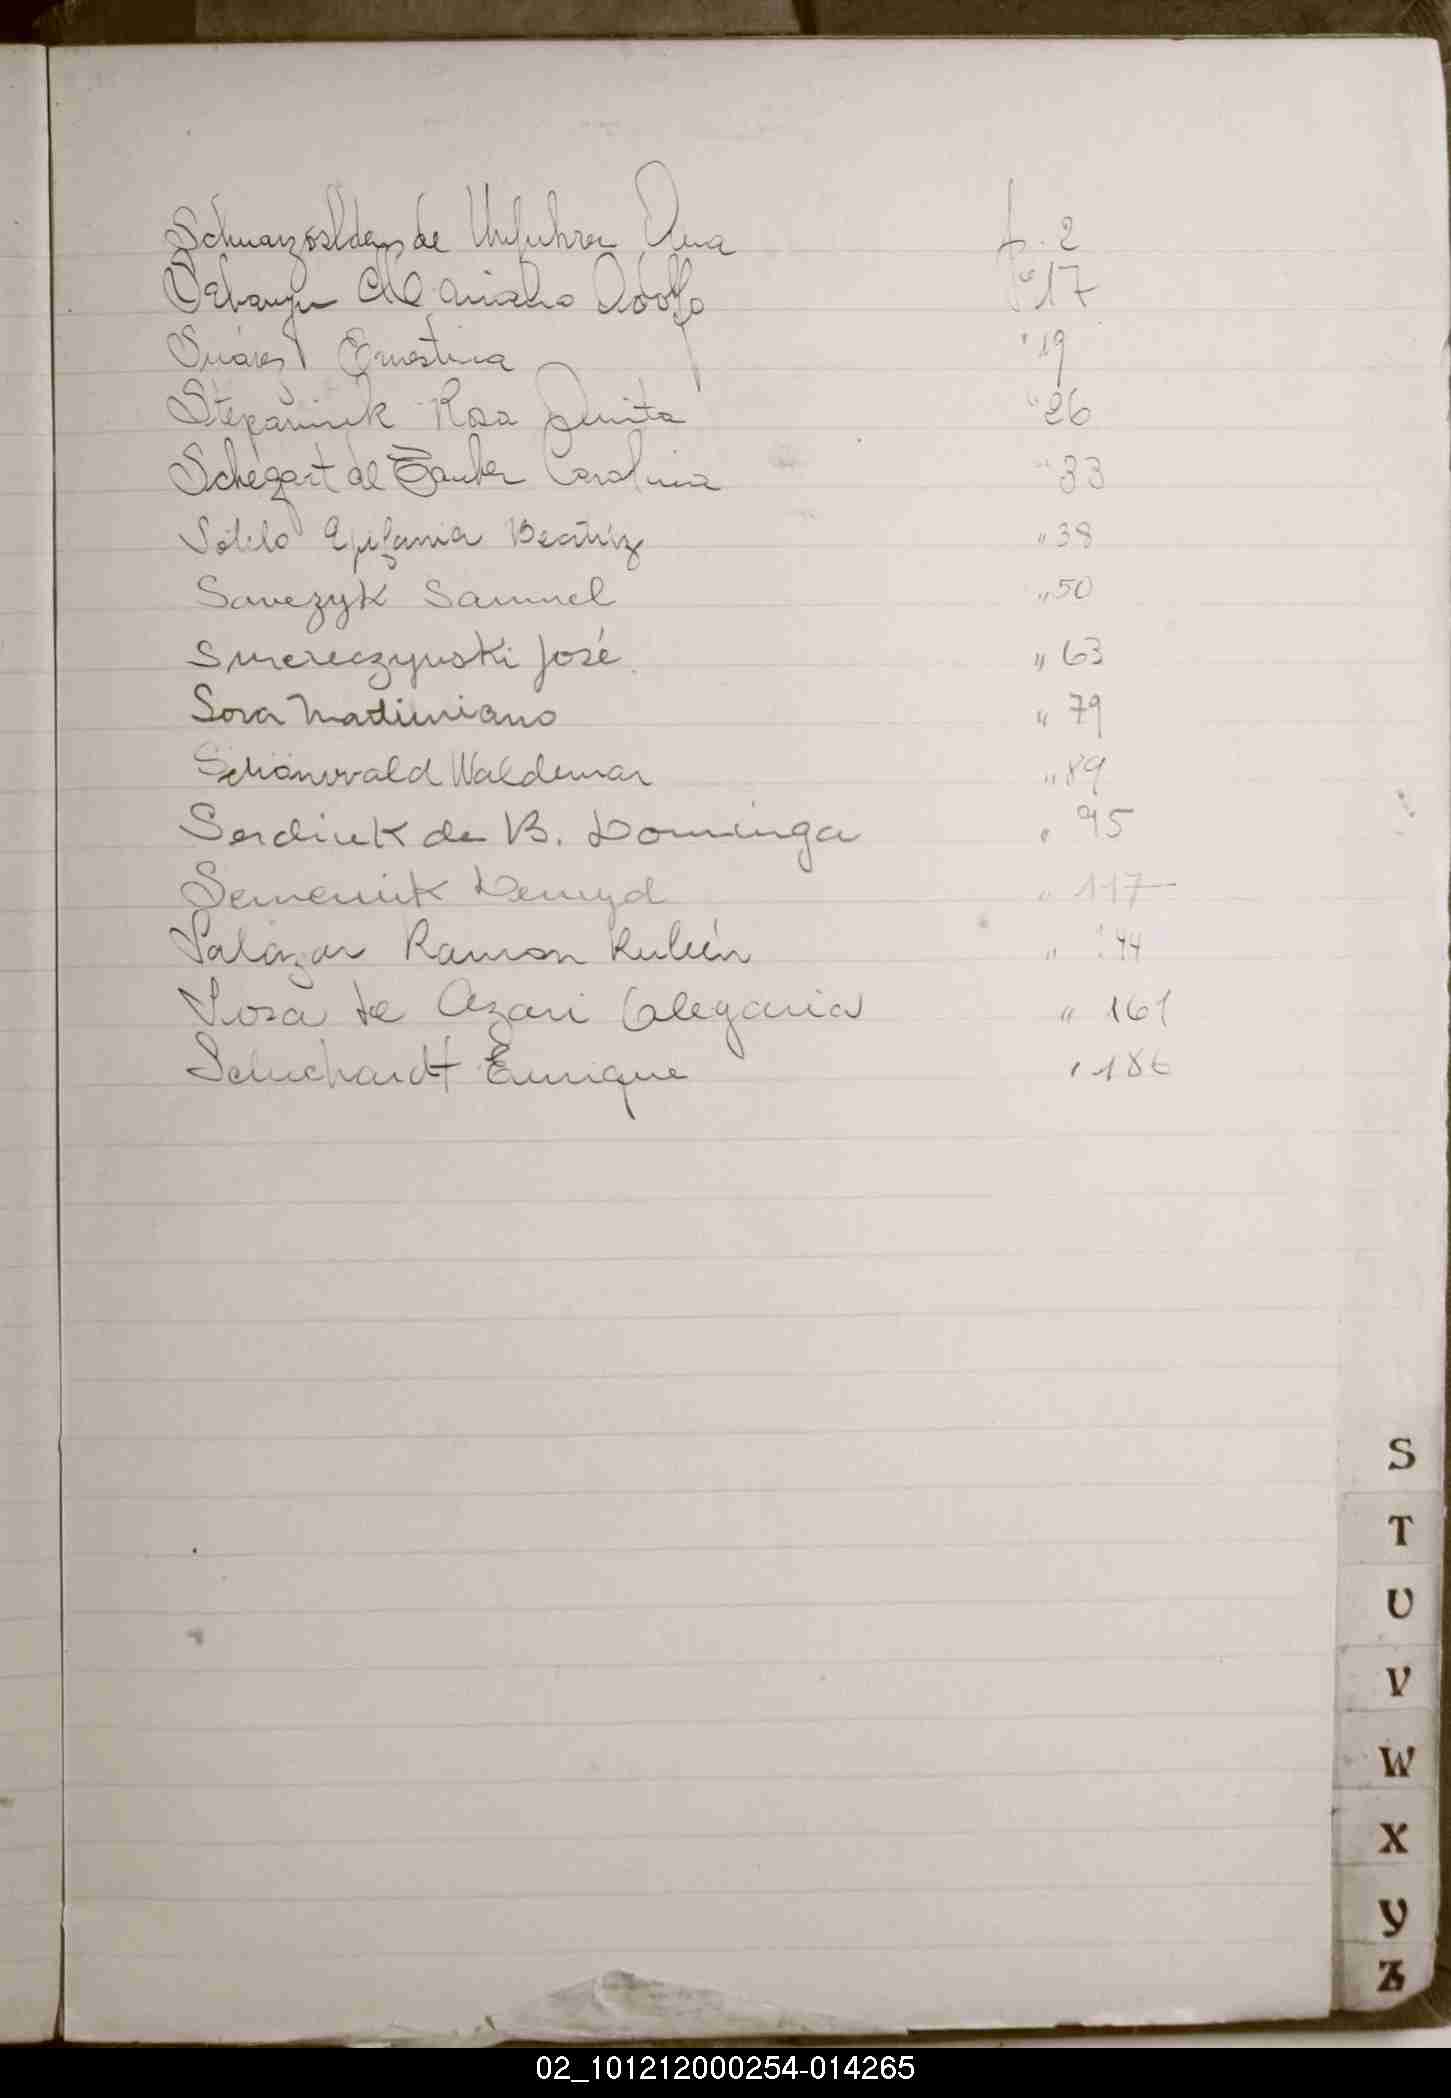 de Ana f. 2
Adolfo " 17
Suárez Ernestina " 19
Stepaniuk Rosa Juanita " 26
Schegart de Tauber Carolina " 33
Sotelo Epifania Beatriz " 38
Savczyk Samuel " 50
Smereczynski José " 63
Sosa Matiniano " 79
Schönwald Waldemar " 89
Serdiuk de B. Dominga " 95
Semeniuk Demyd " 117
Salazar Ramon Rubén " 144
Sosa de Azari Olegaria " 161
Schuchardt Enrique " 186
S
T
U
V
W
X
Y
Z
02_101212000254-014265